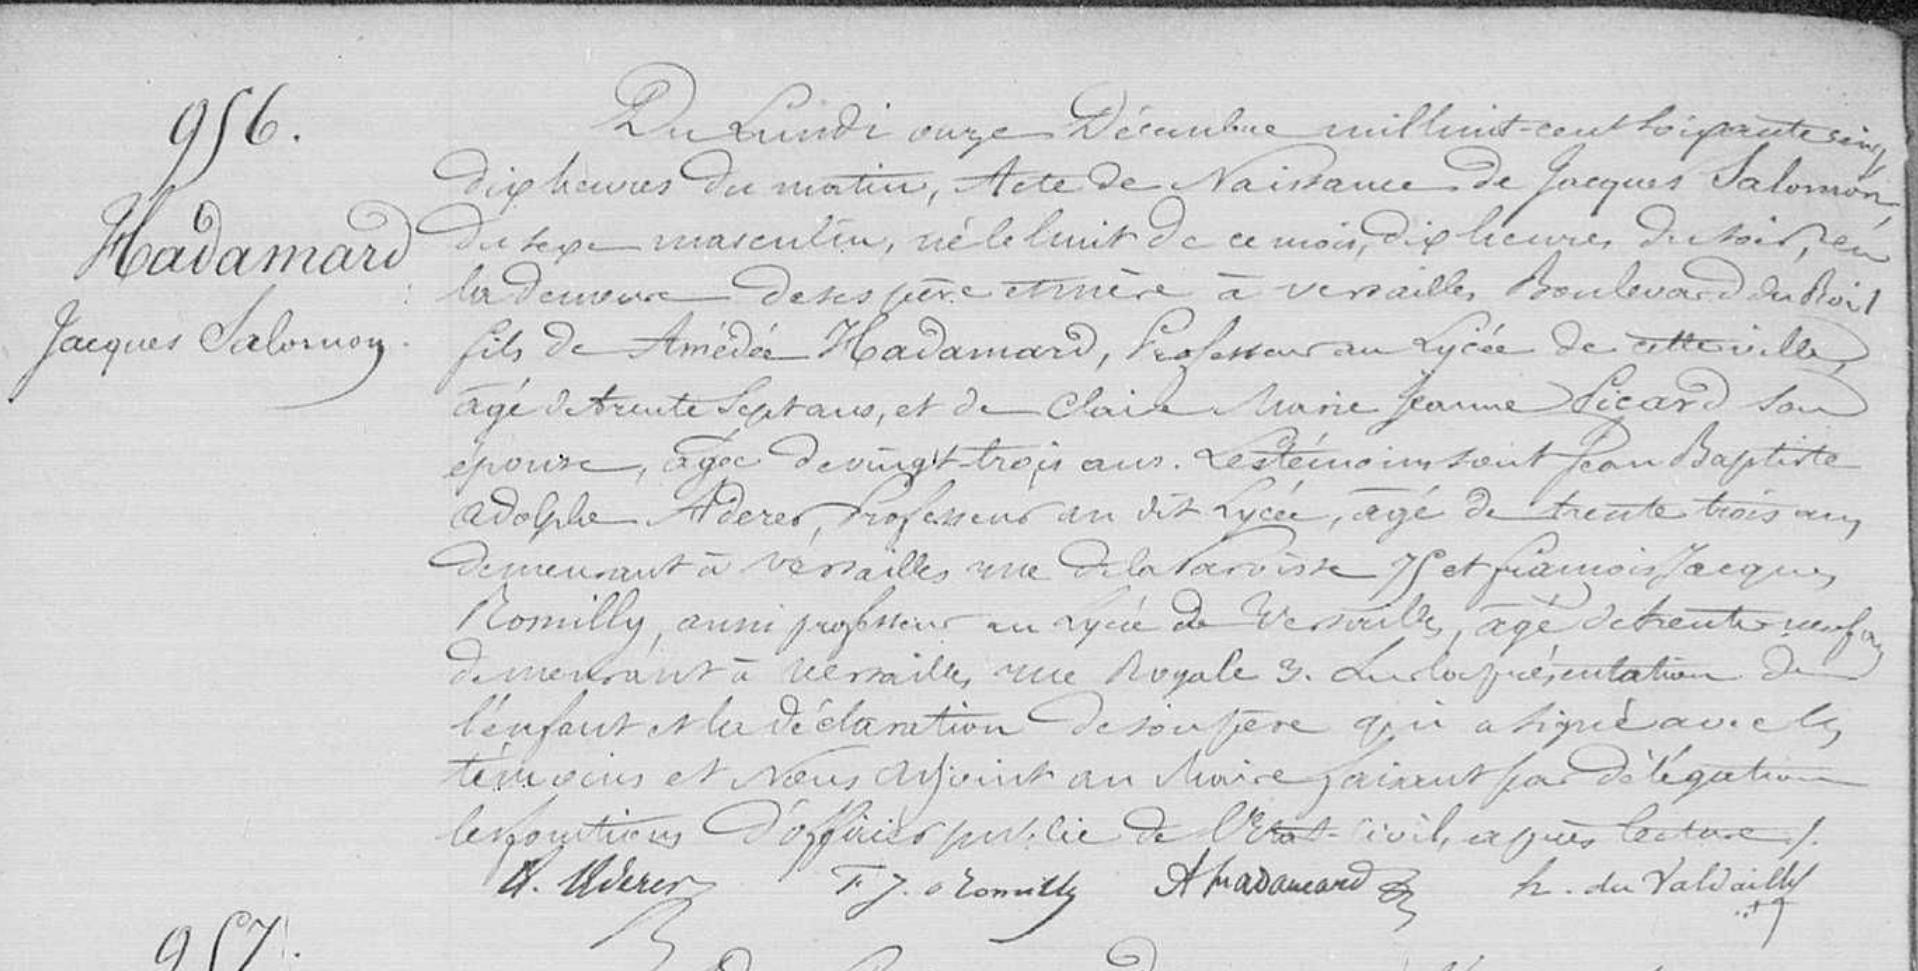 956.
Hadamard
Jacques Salomon.
Du Lundi onze Décembre mil huit-cent soixante cinq
dix heures du matin, Acte de Naissance de Jacques Salomon,
du sexe masculin, né le huit de ce mois, dix heures du soir, en
la demeure de ses père et mère à Versailles Boulevard du Roi 1
fils de Amédée Hadamard, Professeur au Lycée de cette ville,
âgé de trente sept ans, et de Claire Marie Jeanne Picard son
épouse, âgée de vingt-trois ans. Les témoins sont Jean Baptiste
Adolphe Aderer, Professeur au dit Lycée, âgé de trente trois ans,
demeurant à Versailles rue de la Paroisse 75 et françois Jacques
Romilly, aussi professeur au Lycée de Versailles, âgé de trente-neuf ans
demeurant à Versailles rue Royale 3. Sur la présentation de
l'enfant et la déclaration de son père qui a signé avec les
témoins et Nous Adjoint au Maire faisant par délégation
les fonctions d'officier public de l'Etat-Civil, après lecture ./.
A. Aderer F. J. Romilly A Hadamard h. du Valdailly
957.